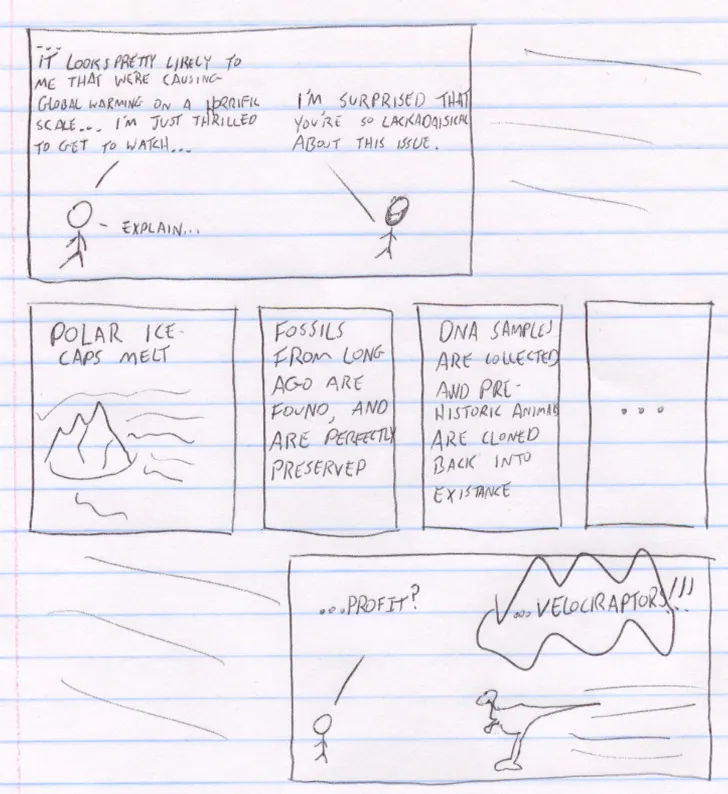 ...
IT LOOKS PRETTY LIKELY TO
ME THAT WE'RE CAUSING
GLOBAL WARMING ON A HORRIFIC
SCALE... I'M JUST THRILLED
TO GET TO WATCH...
I'M SURPRISED THAT
YOU'RE SO LACKADAISICAL
ABOUT THIS ISSUE.
- EXPLAIN...
POLAR ICE-
CAPS MELT
FOSSILS
FROM LONG
AGO ARE
FOUND, AND
ARE PERFECTLY
PRESERVED
DNA SAMPLES
ARE COLLECTED
AND PRE-
HISTORIC ANIMALS
ARE CLONED
BACK INTO
EXISTANCE
...
...PROFIT?
V...VELOCIRAPTORS!!!